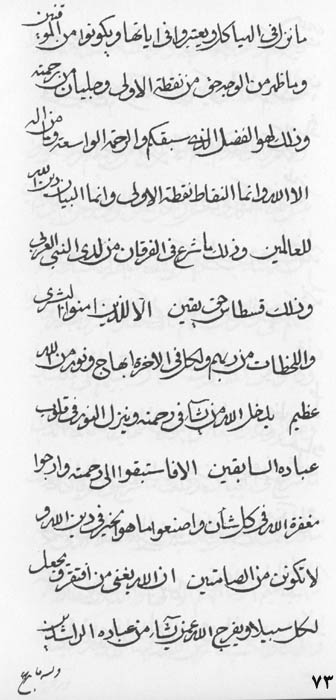 ما نزل في البيا كار و يعتبروا في اياتها و يكونوا من الموقنين
و ما ظهر من الوجه حق من نقطة الاولى و جليان من رحمته
و ذلك لهو الفضل الذي سبقكم و الرحمة الواسعة و ما من اله
الا الله و انما النقاط نقطة الاولى و انما البيان دين الله
للعالمين و ذلك ما شرع في الفرقان من لدى النبي العربي
و ذلك قسطاس حق يقين الا للذين امنوا البشرى
و اللحظات من ربهم و لكل في الاخرة ابهاج و نور من الله
عظيم يدخل الله من يشآ في رحمته و ينزل النور في قلوب
عباده السابقين الا فاستبقوا الى رحمته و ارجوا
مغفرة الله في كل شأن و اصنعوا ما هو الخير في دين الله و
لا تكونن من الصامتين ان الله يغني من افتقر و يجعل
لكل سبيلا و يفرج الله عن من يشآء من عباده الراشدين
٧٣